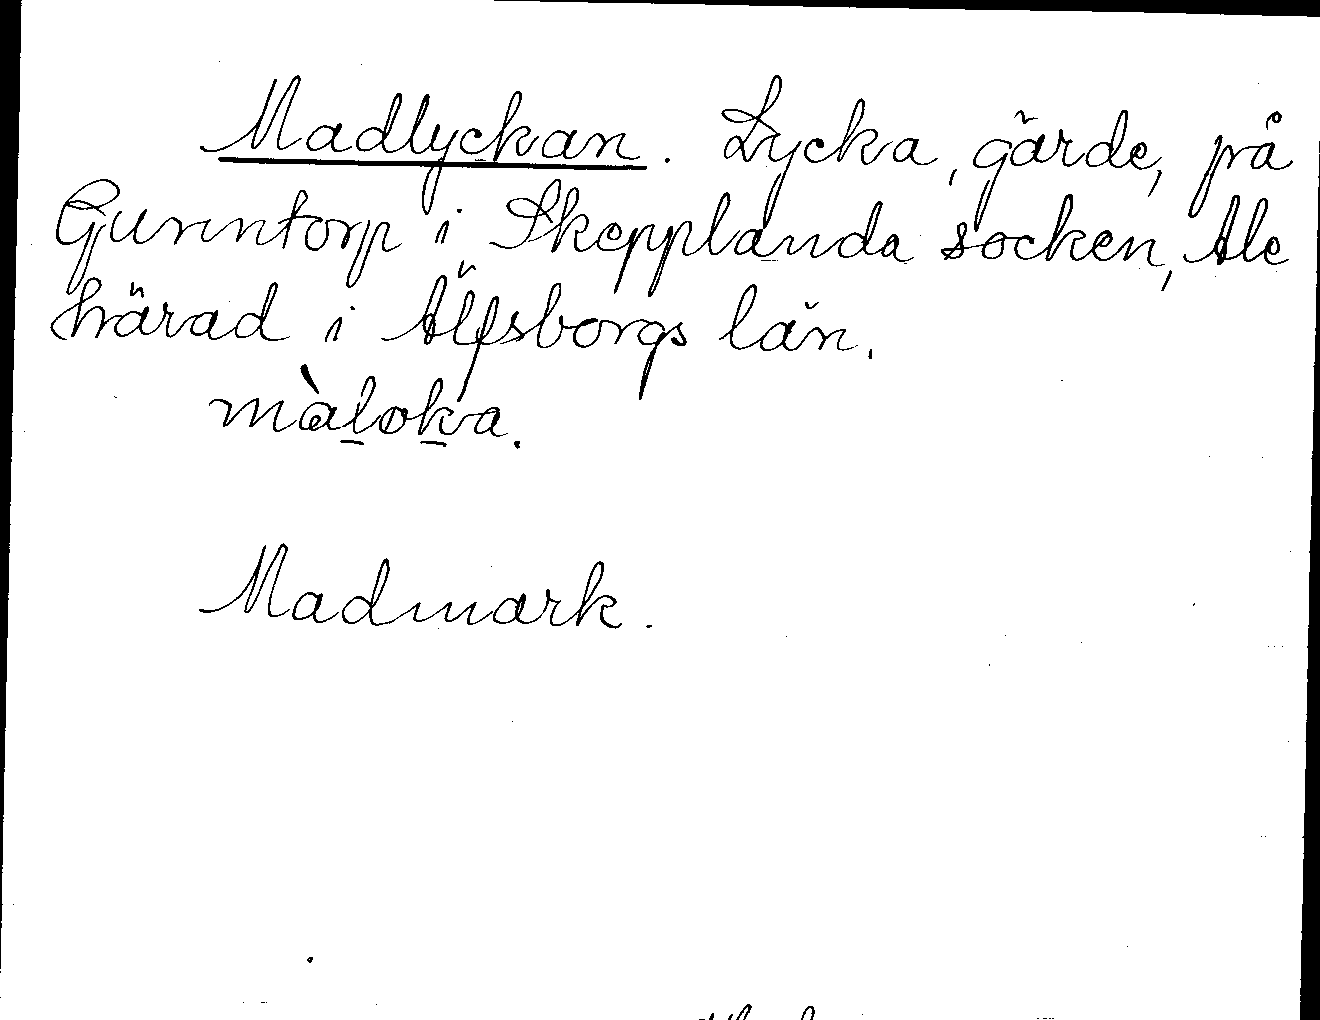 Madlyckan. Lycka, gärde, på
Gunntorp i Skepplanda socken, Ale
härad i Älfsborgs län.
màl̠ok̠a.
Madmark.